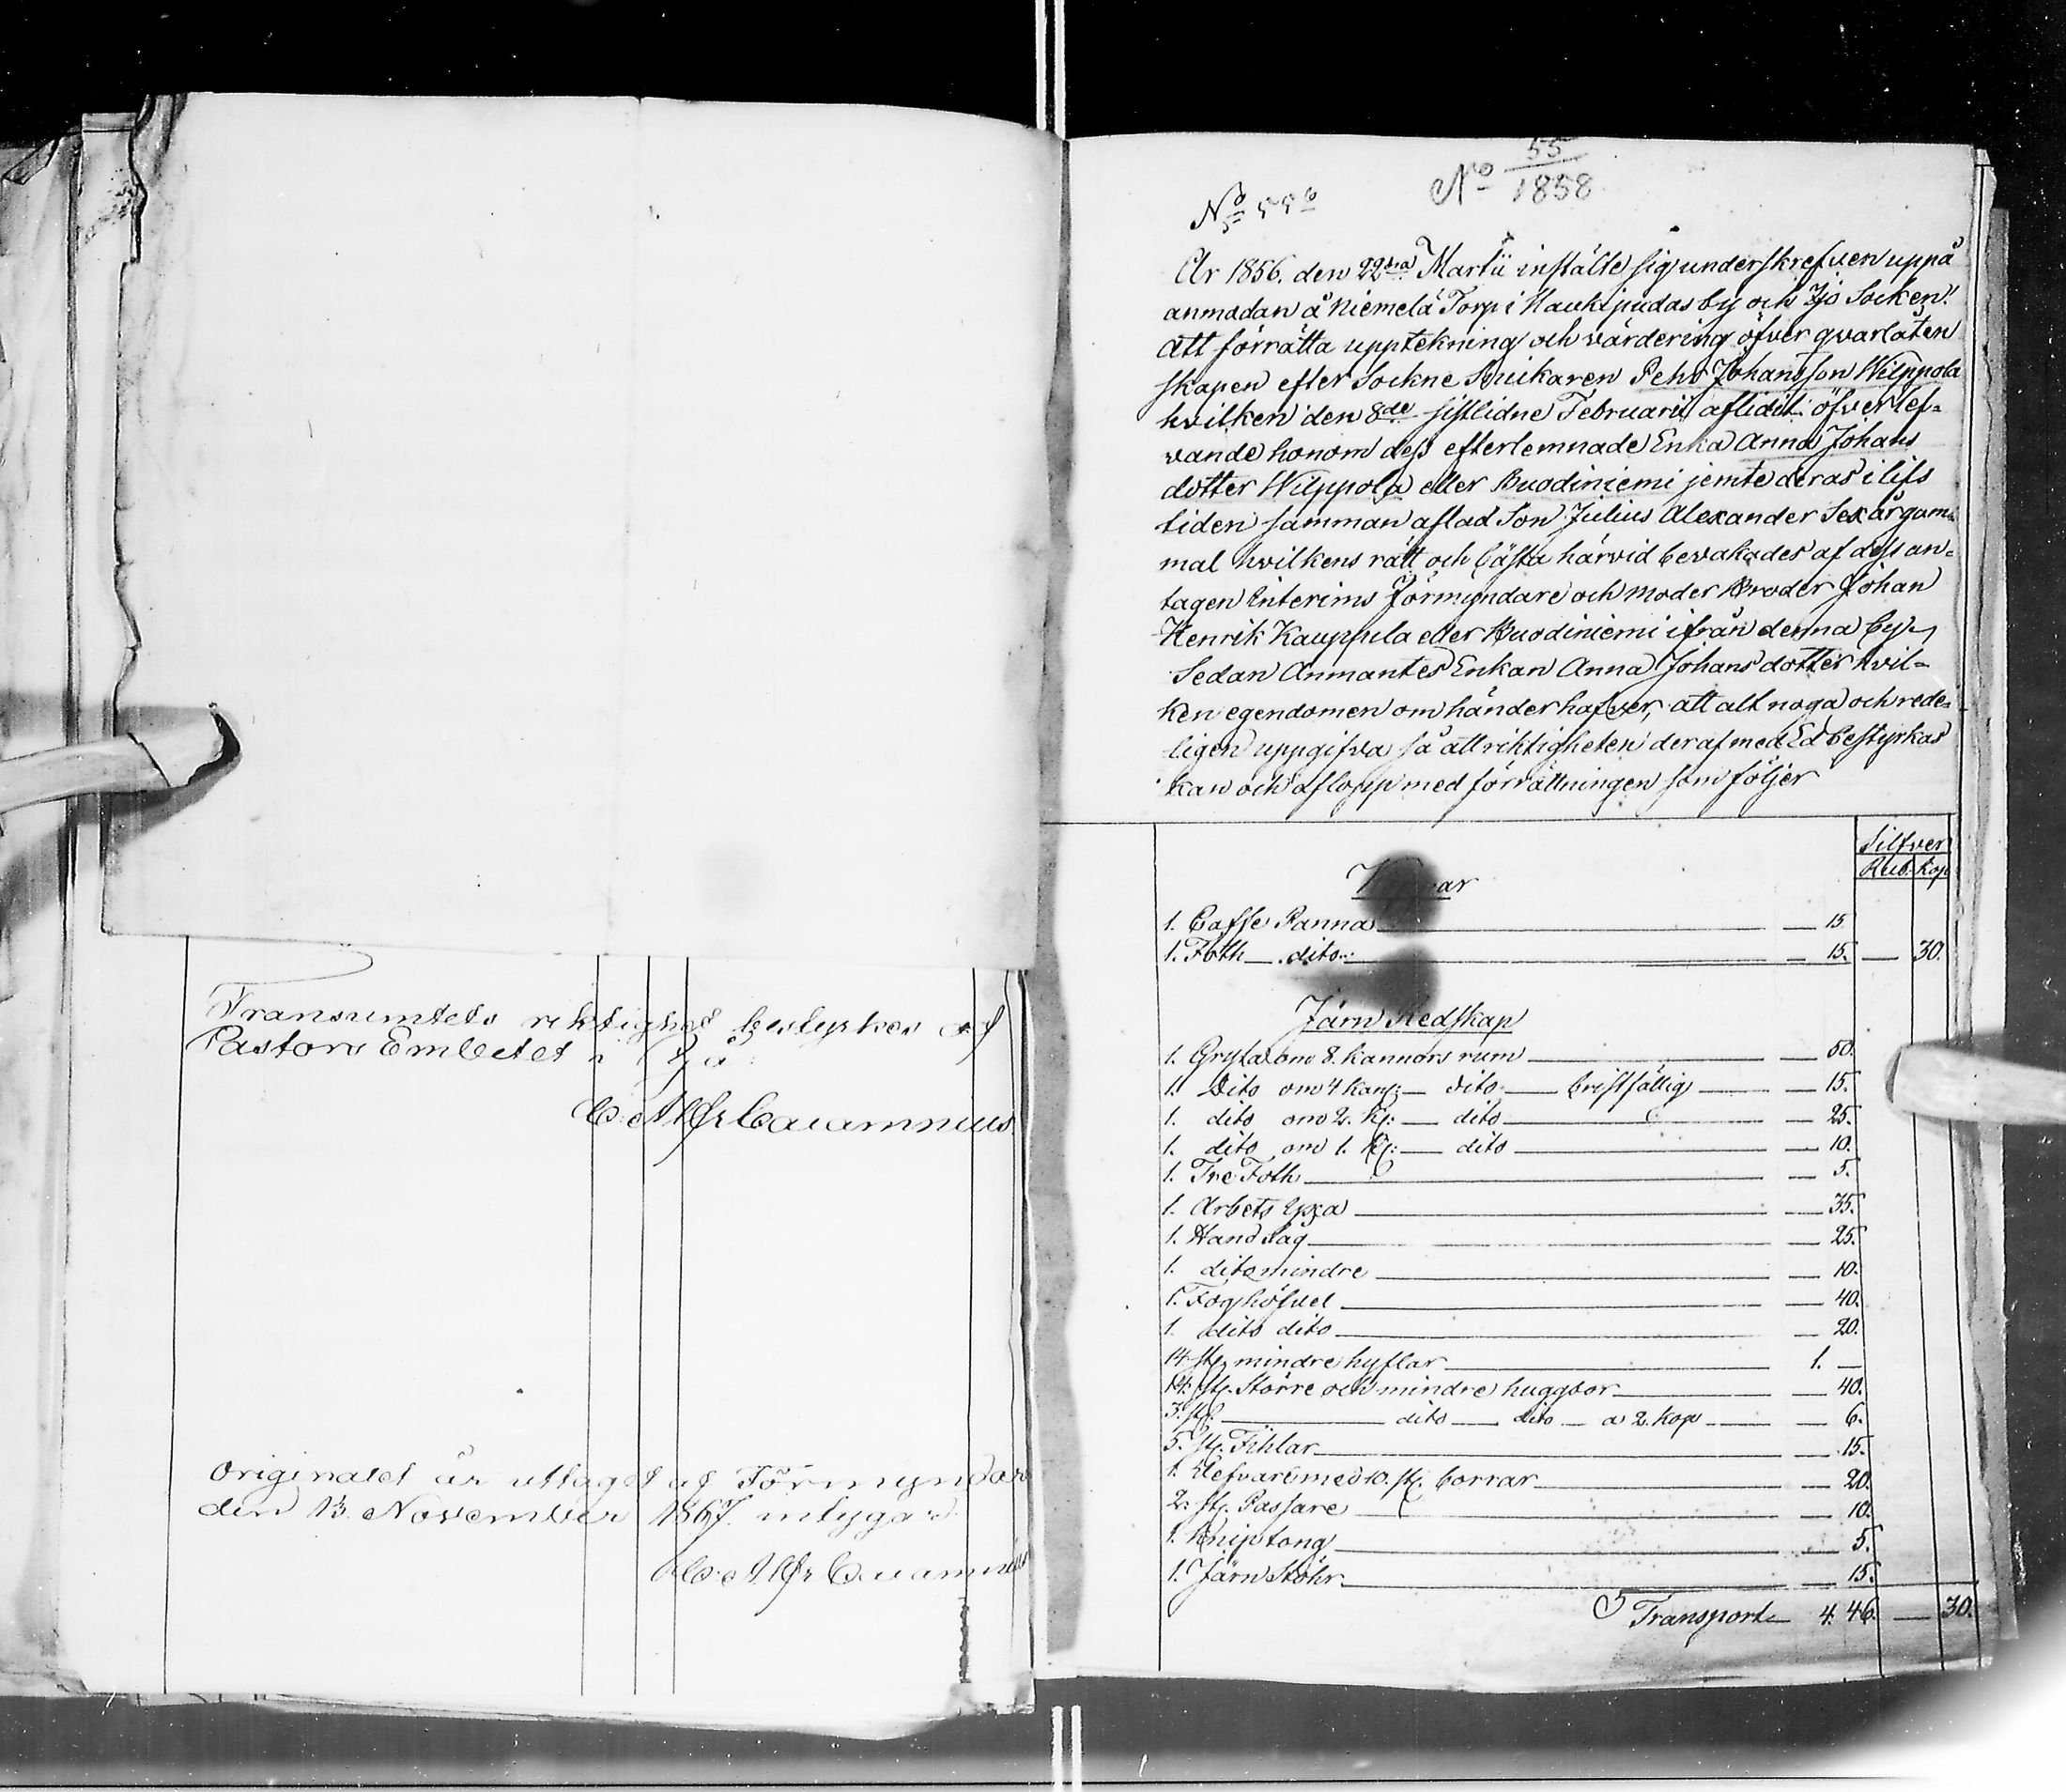 Transumtets riktighet bestyrkes af
Pastors Embetet i Ijå
C. Alfr Cajanus
Originalet är uttaget af Förmyndar
den 13 November 1867 intygar
No 55
1858
No 55
År 1856. den 22dra Martii instälte sig underskrefven uppå
anmodan å Niemelä Torp i Haukipudas by och Ijo Socken
att förrätta uppteknning och värdering öfver qvarlåten
skapen efter Sockne Snickaren Pehr Johansson Wilppola
hvilken den 8de sistlidne Februarii aflidit öfverlef-
vande honom dess efterlemnade Enka Anna Johans
dotter Wilppola eller Buodiniemi jemte deras i lifs
tiden samman aflad Son Julius Alexander Sex år gam-
mal hvilkens rätt och bästa härvid bevakades af dess an-
tagen Interims Förmyndare och moder Broder Johan
Henrik Kauppila eller Buodiniemi ifrån denna by
Sedan Anmantes Enkan Anna Johansdotter hvil-
ken egendomen om händer hafver, att alt noga och rede-
ligen uppgifva så att riktigheten deraf med Ed bestyrkas
kan och aflopp med förrättningen som följer
Silfver
Rub. Kop
1. Caffe Panna — 15
1. Foth dito — 15. — 30.
Järn Redskap
1. Gryta om 8. kannors rum — 50.
1. Dito om 4 kan: dito bristfällig — 15.
1. dito om 2. K: dito — 25.
1. dito om 1. K: dito — 10.
1. Tre Foth — 5.
1. Arbets Yxa — 35.
1. Hand såg — 25.
1. dito mindre — 10.
1. Foghöfvel — 40.
1. dito dito — 20.
14 st. mindre hyflar 1. —
14. st. Större och mindre huggtor — 40.
3. st. dito dito a 2. kop — 6.
5. st. Fihlar — 15.
1. Refvar med 10. st. borrar — 20.
2. st. Passare — 10.
1. Kniptong — 5.
1. Järn Stöhr — 15.
Transport 4. 46. — 30.